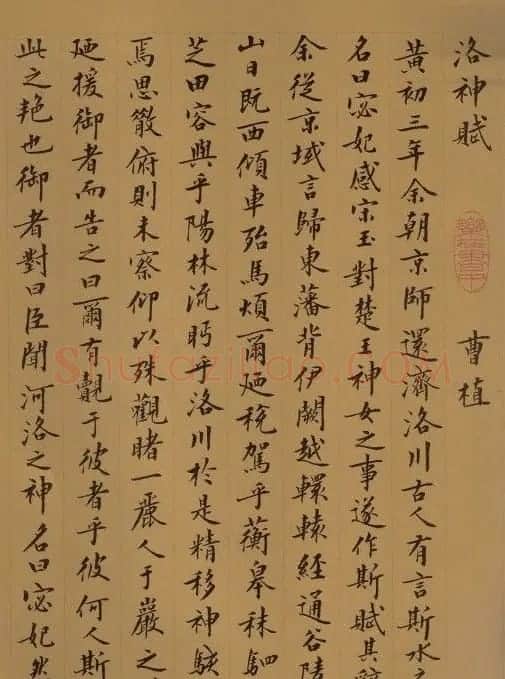 洛神賦 曹植
黃初三年余朝京師還濟洛川古人有言斯水之
名曰宓妃感宋玉對楚王神女之事遂作斯賦其辭
余從京域言歸東藩背伊闕越轘轅經通谷陵
山日既西傾車殆馬煩爾迺稅駕乎蘅皋秣駟
芝田容與乎陽林流眄乎洛川於是精移神駭
焉思散俯則未察仰以殊觀睹一麗人于巖之
迺援御者而告之曰爾有覿于彼者乎彼何人斯
此之艳也御者對曰臣聞河洛之神名曰宓妃然